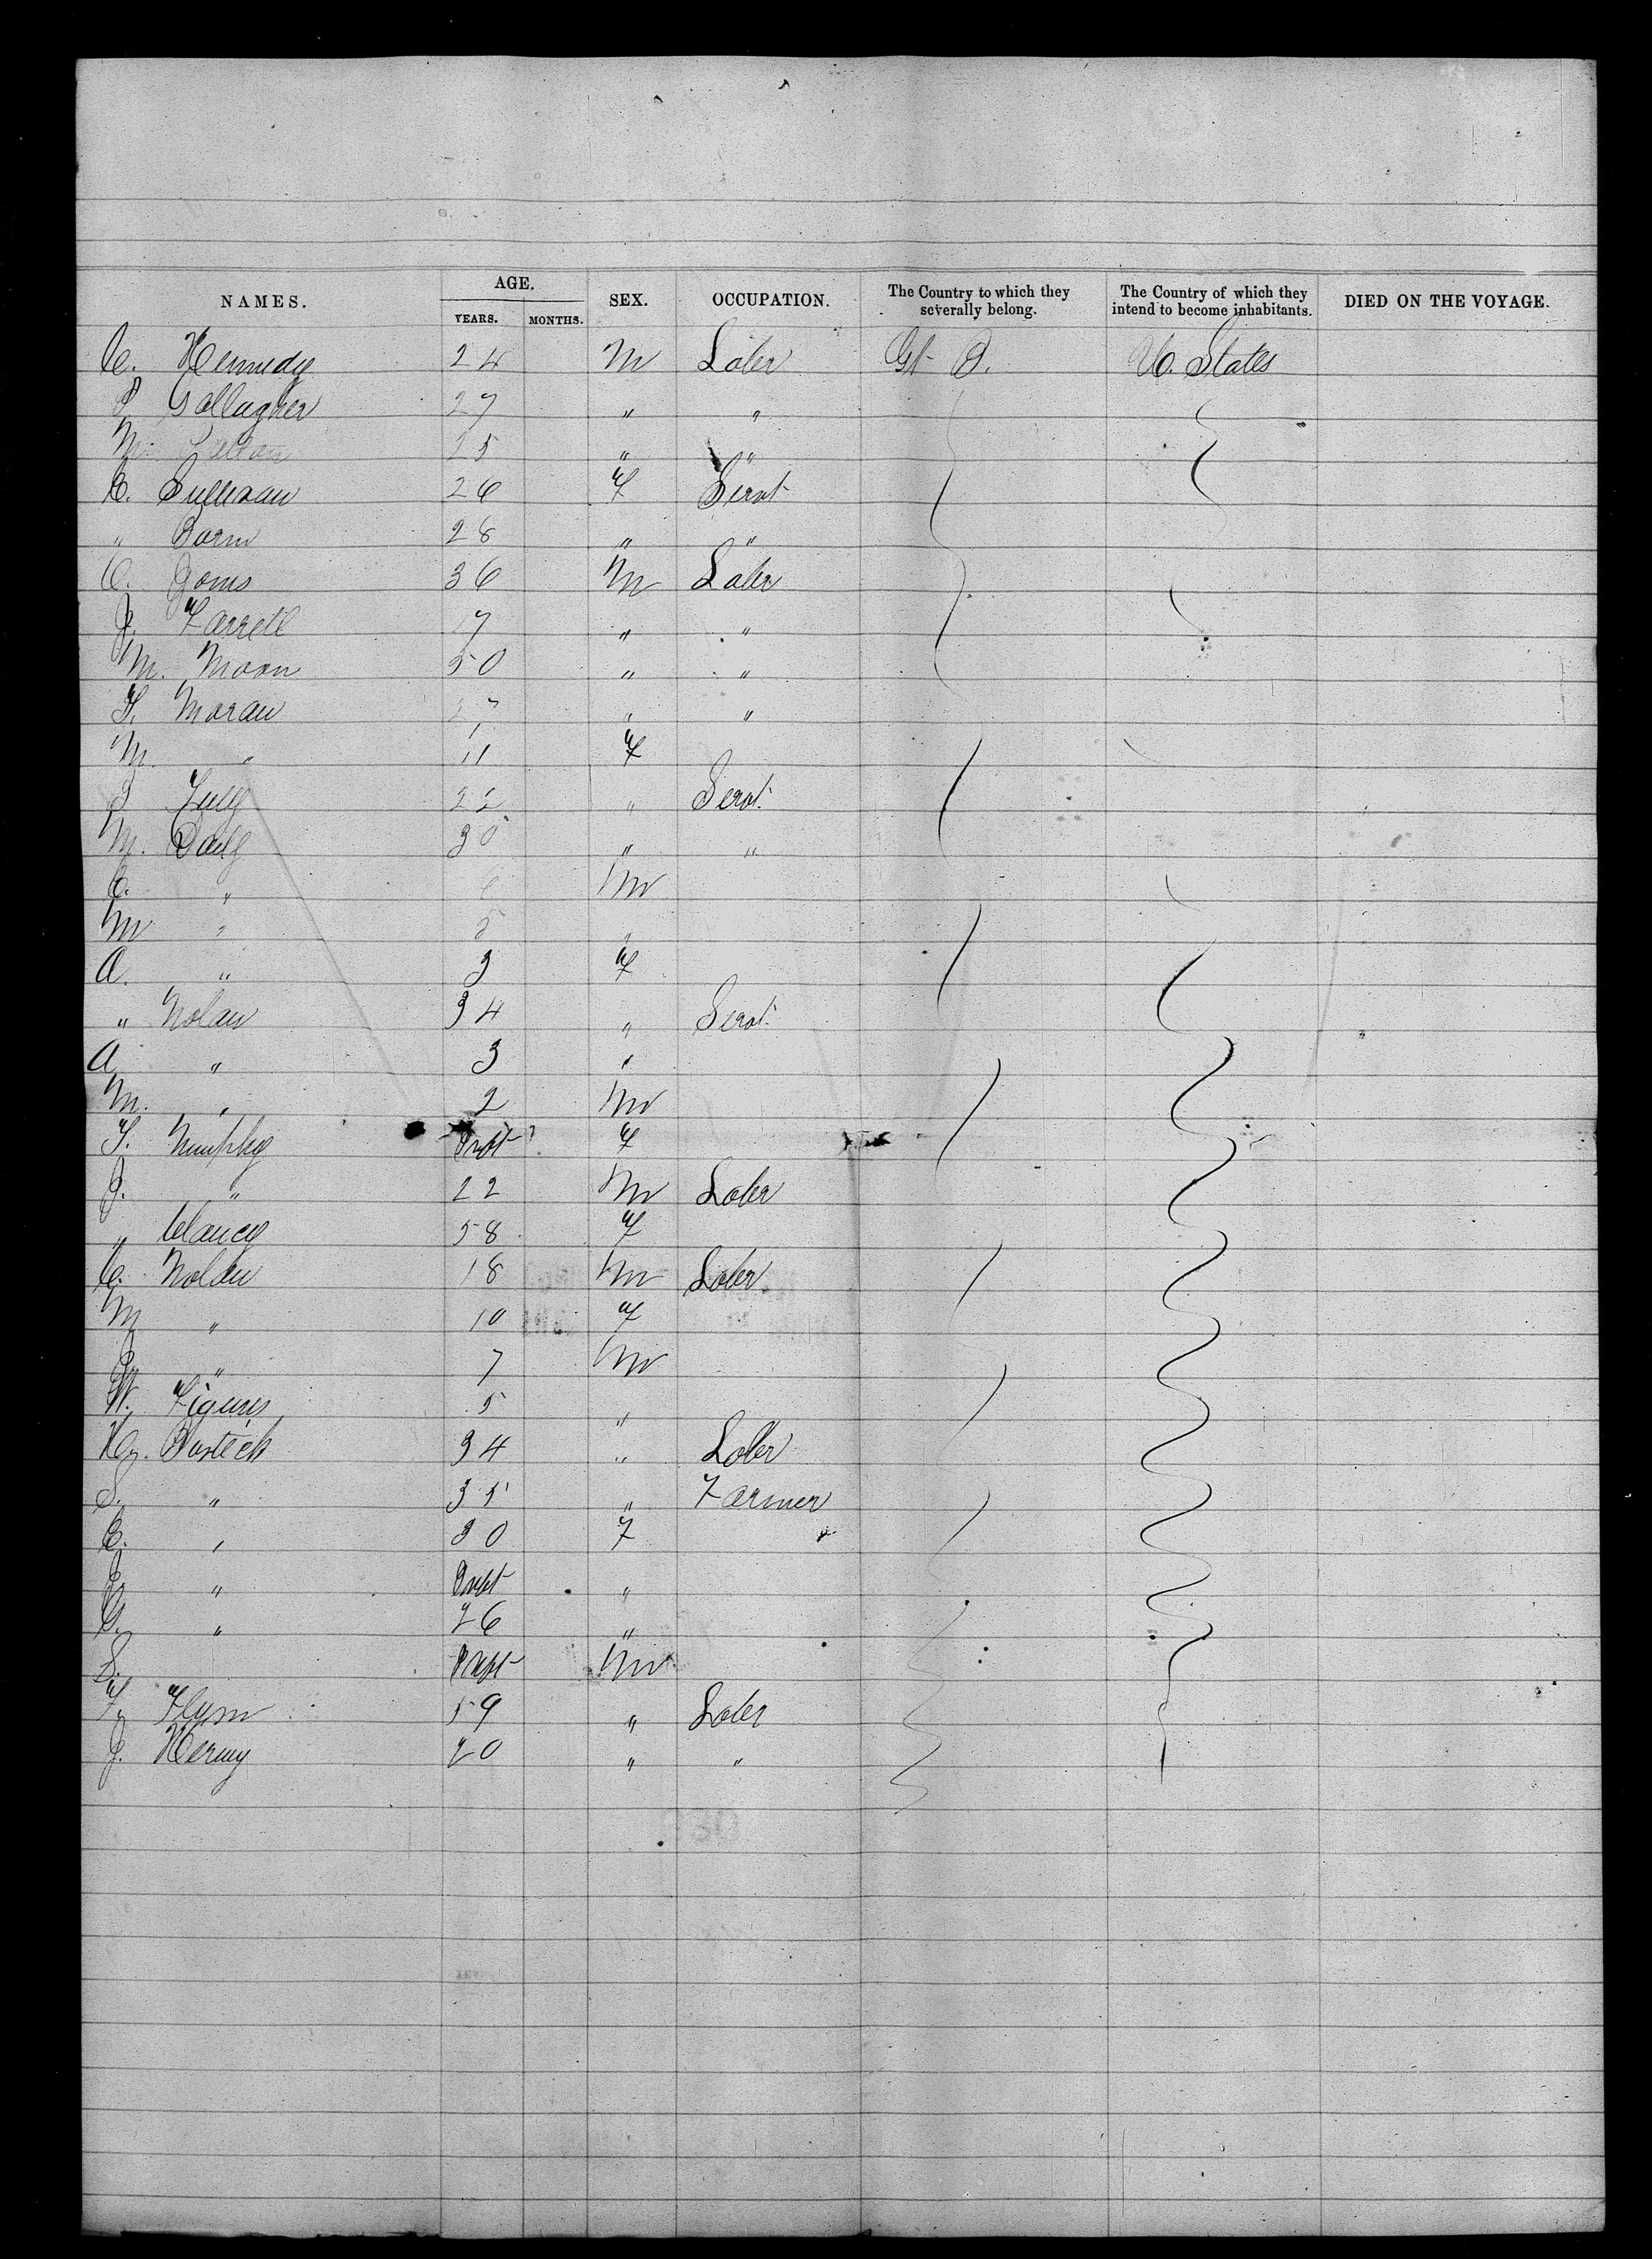 NAMES. AGE. YEARS. MONTHS. SEX. OCCUPATION. The Country to which they severally belong. The Country of which they intend to become inhabitants. DIED ON THE VOYAGE.
C. Kennedy 24 M Laber Gt B. U. States
P Gallagher 27 " "
M. 25 " "
C. Sullivan 26 F Servt
" 28 " "
36 M Laber
J. Farrell 17 " "
M. Moon 50 " "
F. Moran " "
M. " 11 F
22 " Servt.
M. Daily 30 " "
C. " M
M " 5 "
A. " 3 F
" Nolan 34 " Servt.
A " 3 "
M. " 2 M
F. Murphy Inft F
J. " 22 M Laber
" Clancy 58 F
C. Nolan 18 M Laber
M " 10 F
" 7 M
W. 5 "
Hy. Bostick 34 " Laber
S. " 35 " Farmer
E. " 30 F
" Inft "
" 26 "
S. Inft M
F. Flynn 59 " Laber
J. 20 " "